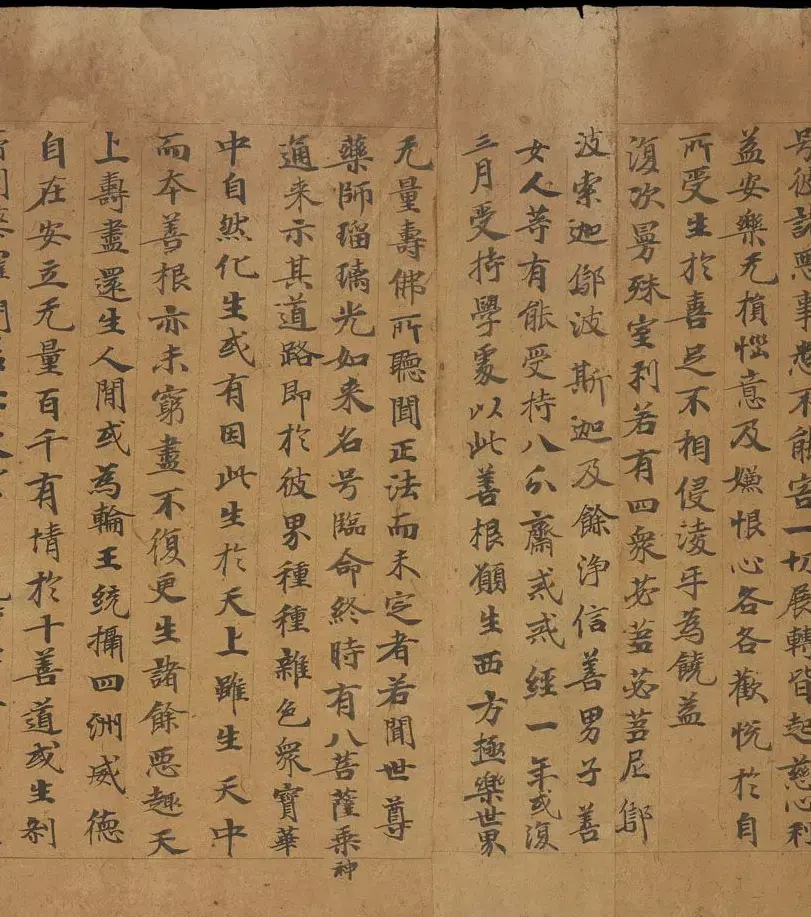 号彼諸惡事悉不能害一切展轉皆起慈心利
益安樂无損惱意及嫌恨心各各歡悅於自
所受生於喜足不相侵淩㸦為饒益
復次曼殊室利若有四衆苾蒭苾蒭尼鄔
波索迦鄔波斯迦及餘淨信善男子善
女人等有能受持八分齋戒或經一年或復
三月受持學處以此善根願生西方極樂世界
无量壽佛所聽聞正法而未定者若聞世尊
藥師瑠璃光如来名号臨命終時有八菩薩乘神
通来示其道路即於彼界種種雜色衆寶華
中自然化生或有因此生於天上雖生天中
而本善根亦未窮盡不復更生諸餘惡趣天
上壽盡還生人間或為輪王統攝四洲威德
自在安立无量百千有情於十善道或生剎